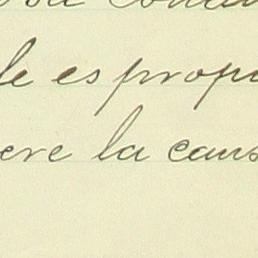 le es propi
ere la caus